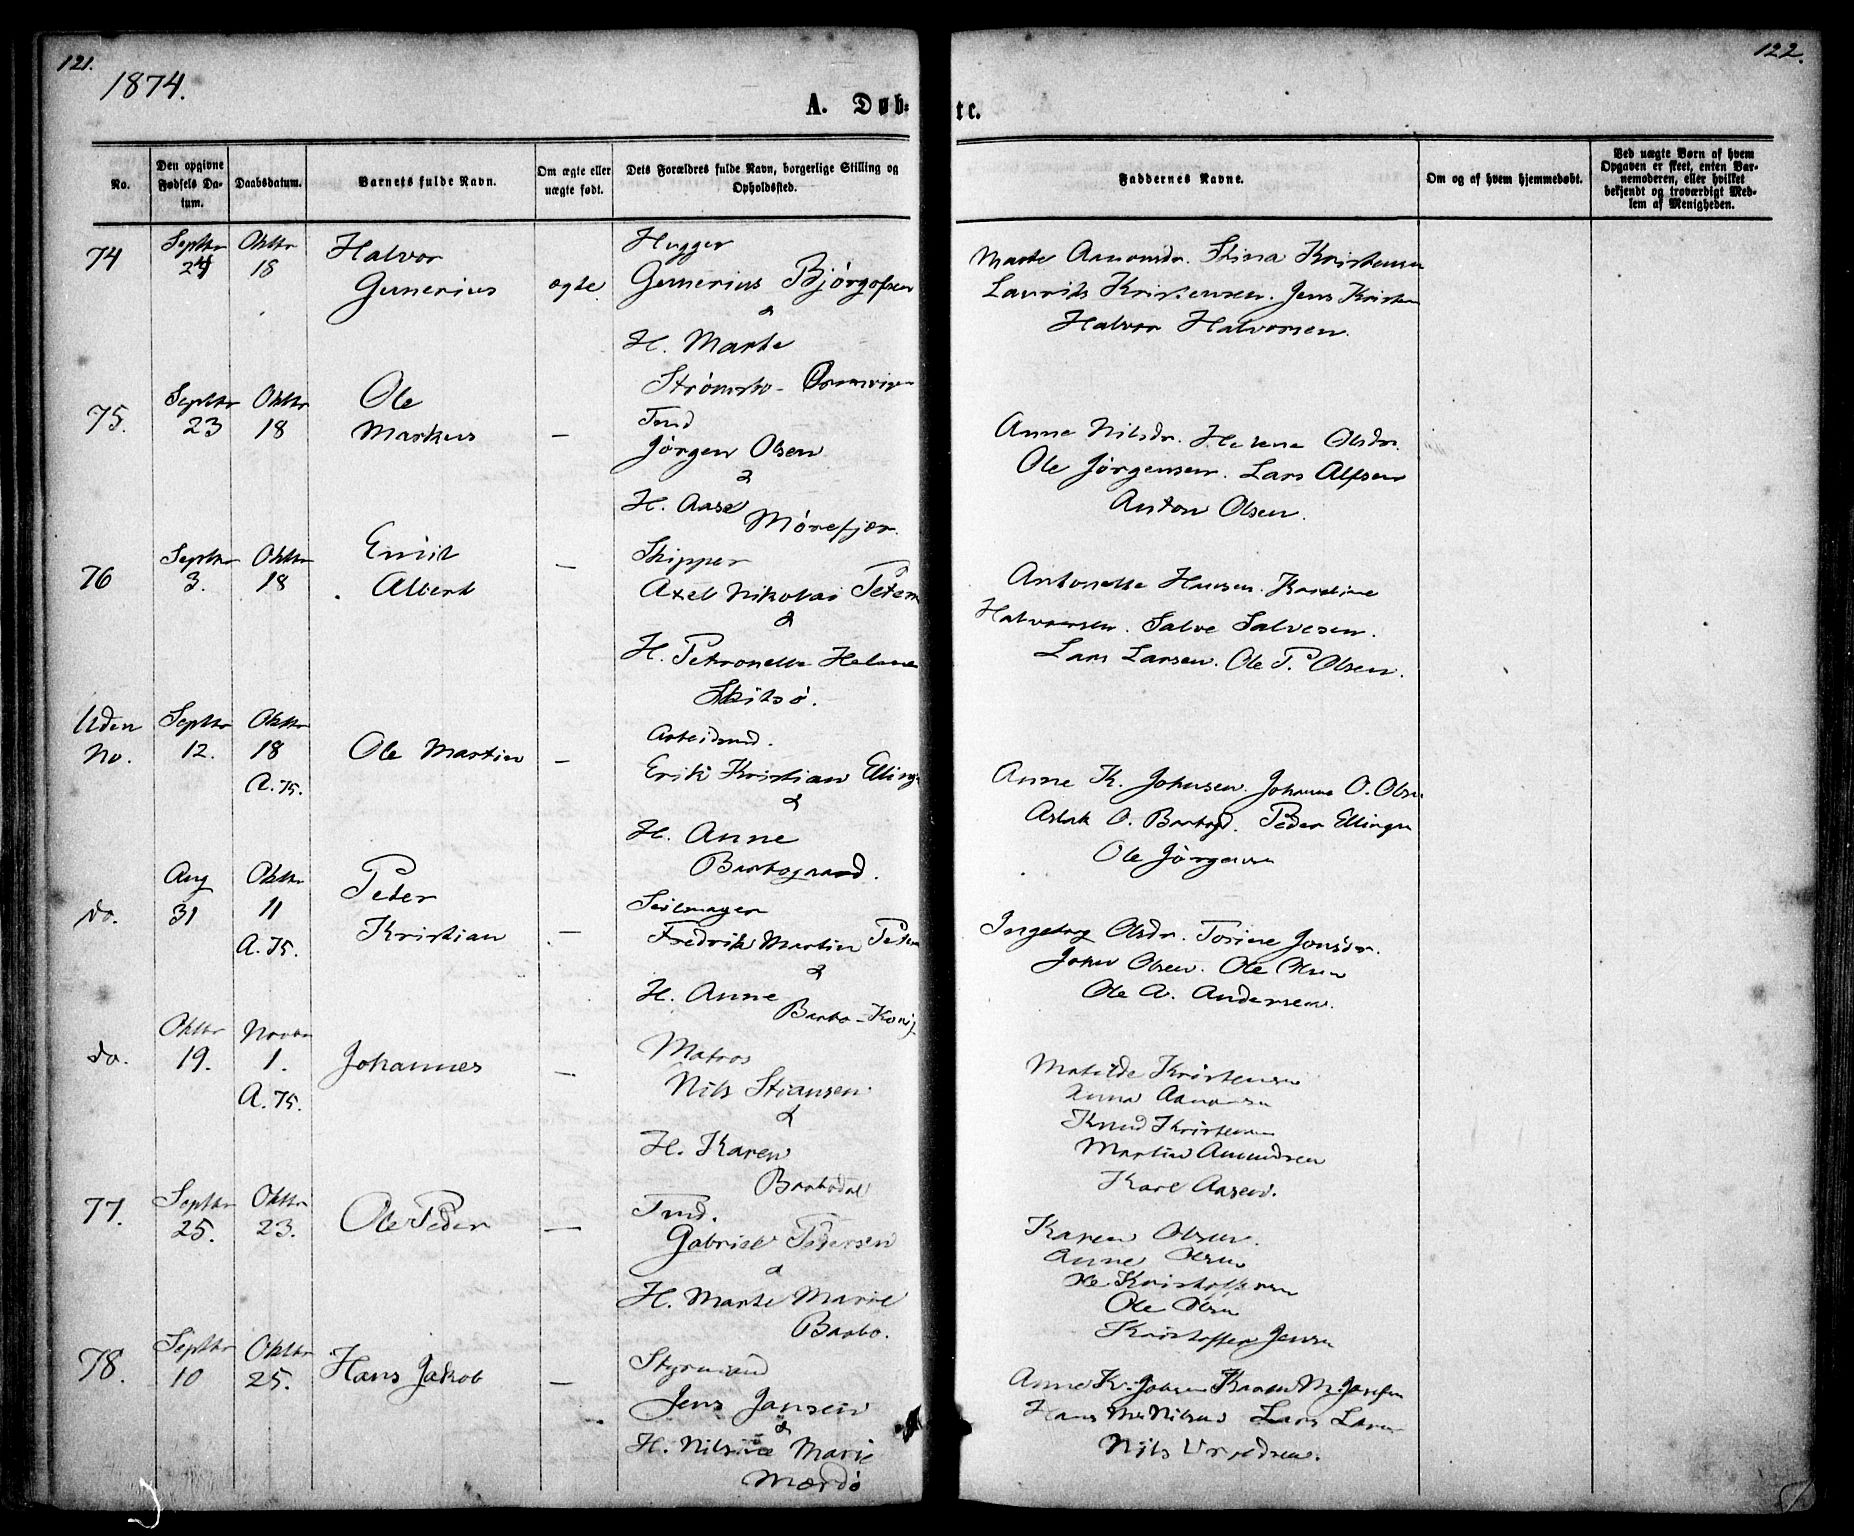 121.
1874.
A. Døb-
No.
Den opgivne Fødsels Da-tum.
Daabsdatum.
Barnets fulde Navn.
Om ægte eller uægte født.
Dets Forældres fulde Navn, borgerlige Stilling og Opholdssted.
74
Septbr 24
Oktbr 18
Halvor
Gunerius
ægte
Hugger
Gunerius Bjørgofsen
&
H. Marte
Strømsbo
75.
Septbr 23
Oktbr 18
Ole
Markus
—
Tmd
Jørgen Olsen
&
H. Aase
Mørefjær.
76
Septbr 3.
Oktbr 18
Emil
Albert
—
Skipper
Axel Nikolai Petersen
&
H. Petronelle Helene
Skilsø.
Uden No.
Septbr 12.
Oktbr 18
A. 75.
Ole Martin
—
Arbeidsmd.
Erik Kristian Elling
&
H. Anne
Barbogaard.
do.
Aug 31
Oktbr 11
A. 75.
Peter
Kristian
—
Seilmager
Fredrik Martin
&
H. Anne
Barbo
do.
Oktbr 19.
Novbr 1.
A. 75.
Johannes
—
Matros
Nils Stiansen
&
H. Karen
Barbodal
77.
Septbr 25.
Oktbr 23.
Ole Peder
—
Tmd.
Gabriel Pedersen
&
H. Marte Marie
Barbo.
78.
Septbr 10
Oktbr 25.
Hans Jakob
—
Styrmand
Jens Jansen
&
H. Nilsine Marie
Mærdø
122.
te.
Faddernes Navne.
Om og af hvem hjemmedøbt.
Ved uægte Børn af hvem Opgaven er skeet, enten Bar-nemoderen, eller hvilket bekjendt og troværdigt Med-lem af Menigheden.
Marte Aanonsdr. Stina Kristensen
Laurits Kristensen. Jens Kristen
Halvor Halvorsen.
Anne Nilsdr. Helene Olsdr.
Ole Jørgensen. Lars Alfsen
Anton Olsen.
Antonette Hansen. Karoline
Halvorsen. Salve Salvesen.
Lars Larsen. Ole P. Olsen.
Anne K. Johnsen. Johanne O. Olsen
Aslak O. Peder Ellingsen
Ole Jørgensen
Ingeborg Olsdr. Torine Jonsdr.
John Olsen. Ole Olsen
Ole A. Andersen.
Matilde Kristensen
Anna
Knud Kristensen
Martin Amundsen
Karl Aasen.
Karen Olsen.
Anne Olsen
Ole Kristoffersen
Ole Olsen
Kristoffer Jensen
Anne K. Karen M.
Hans M. Nilsen Lars Larsen
Nils